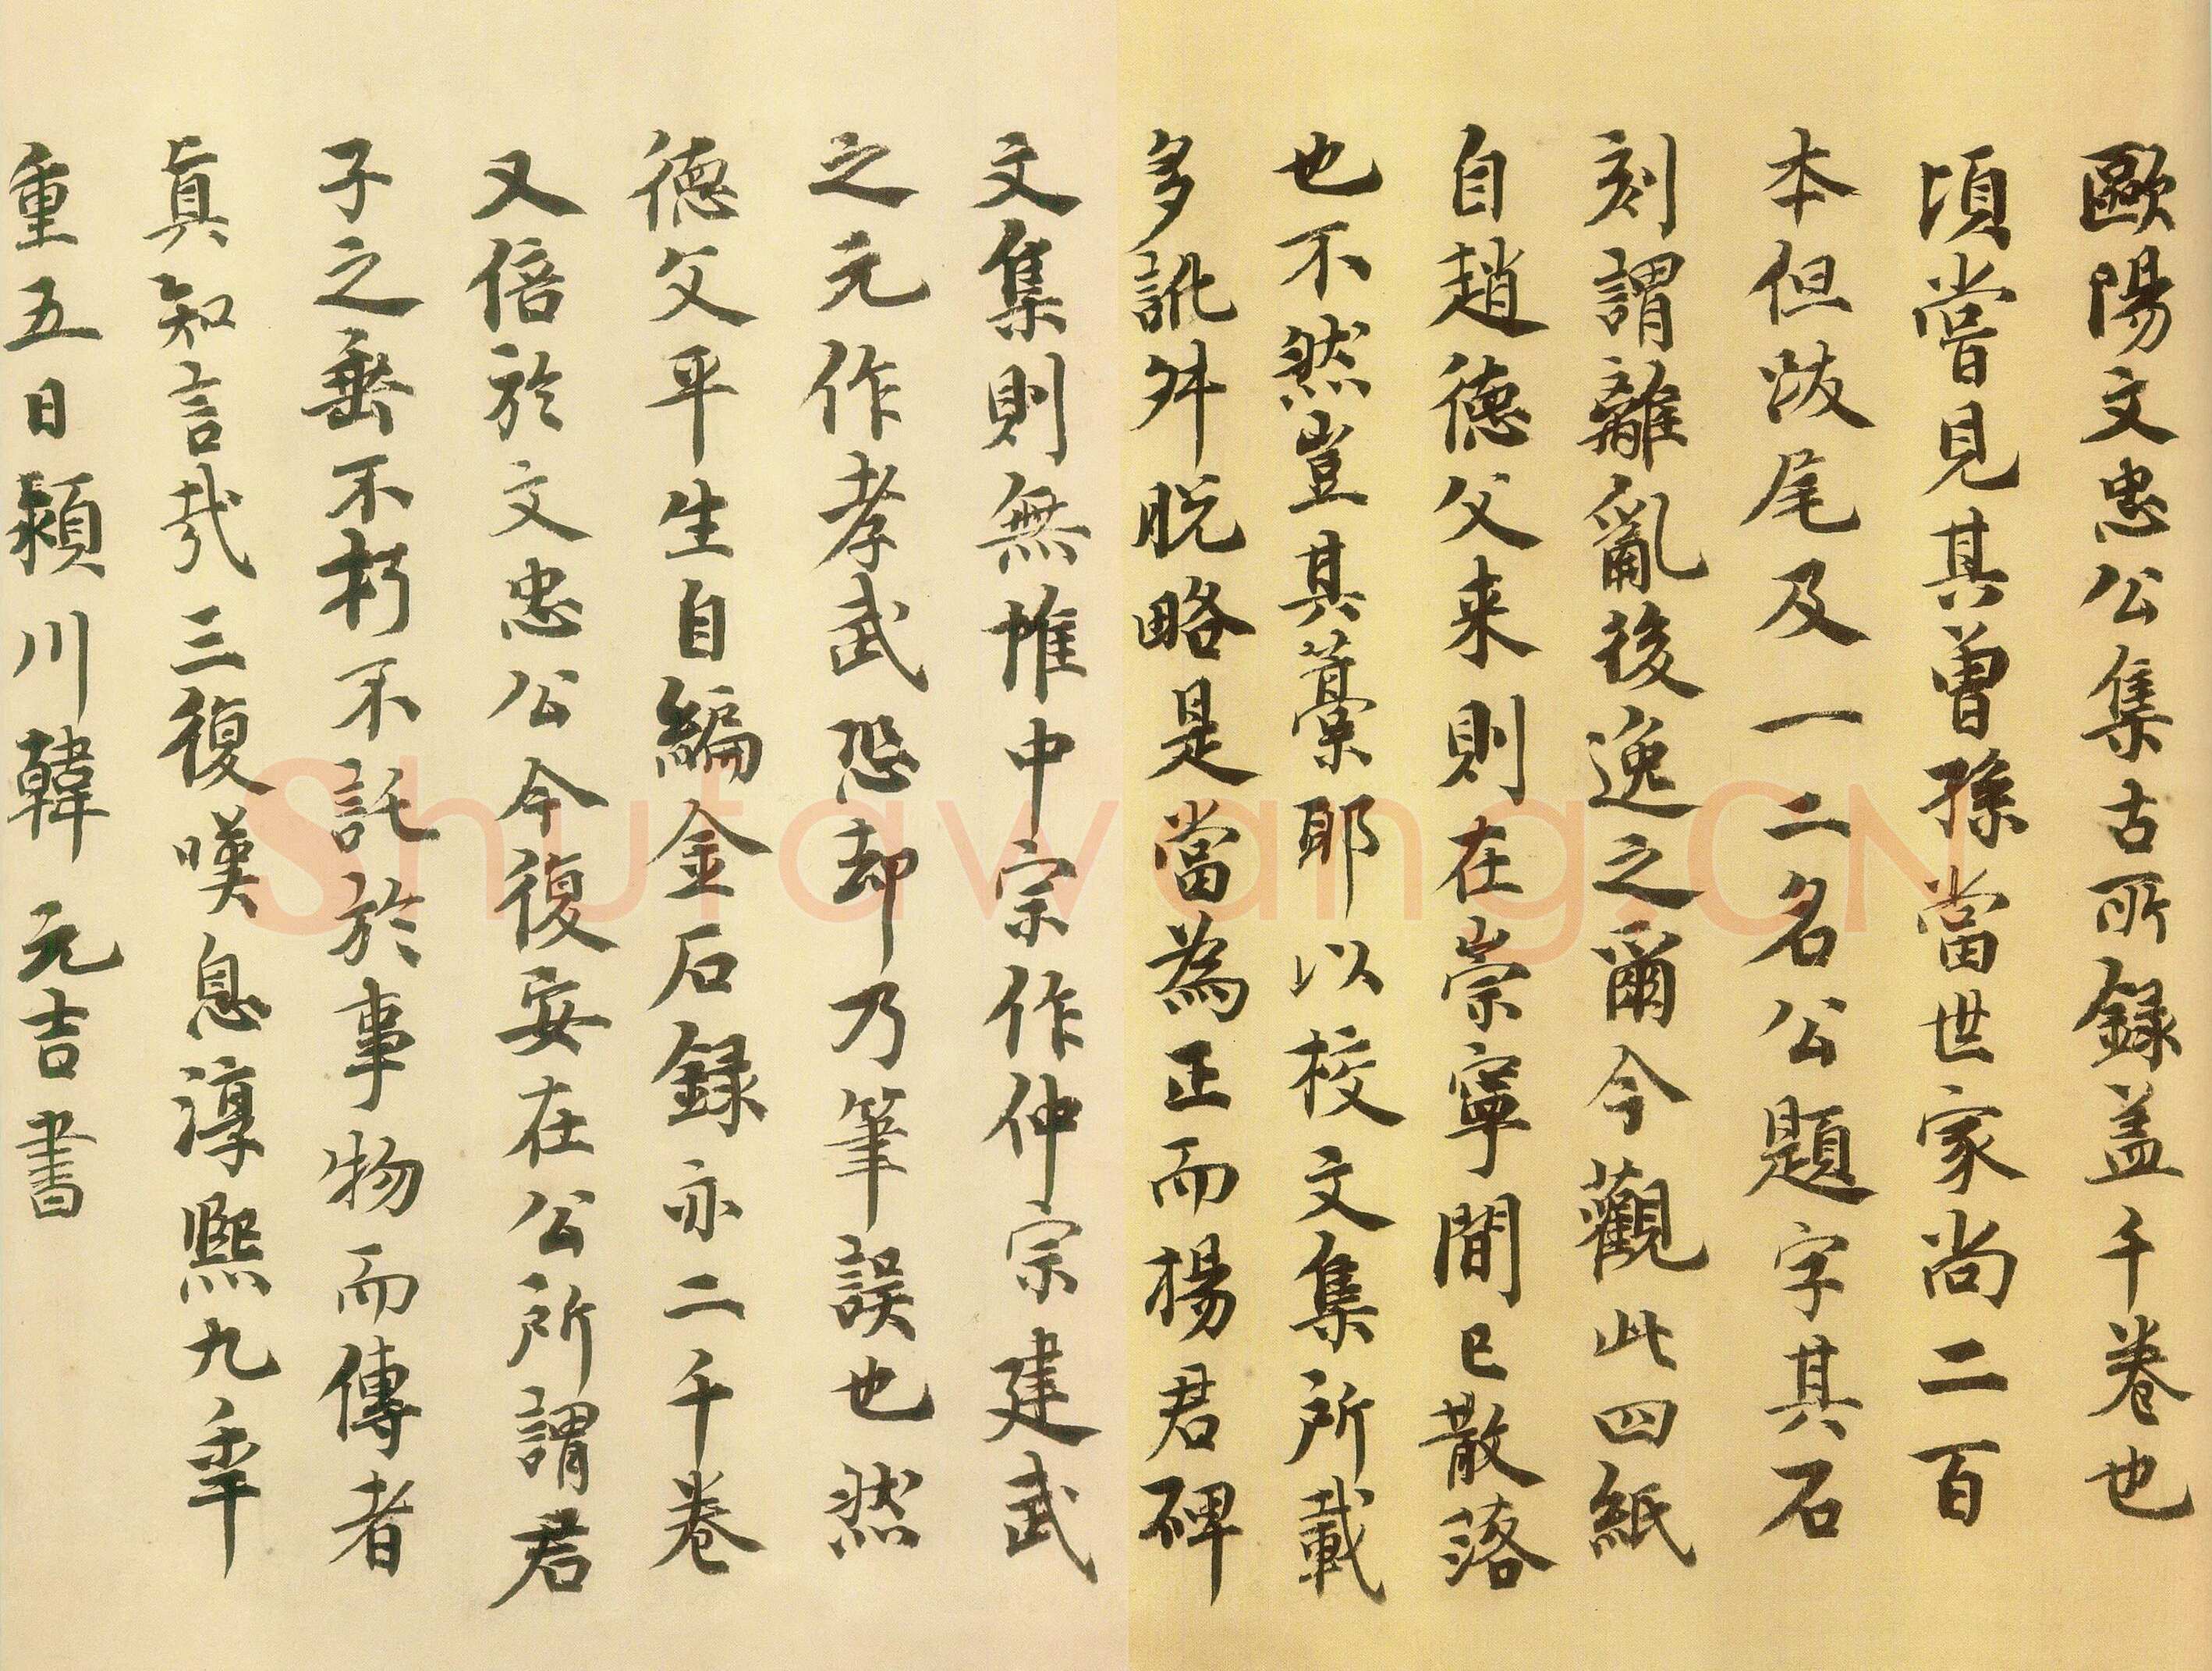 歐陽文忠公集古所録盖千卷也
頃嘗見其曽孫當世家尚二百
本但跋尾及一二名公題字其石
刻謂離亂後逸之爾今觀此四紙
自趙德父来則在崇寧間已散落
也不然豈其藁耶以校文集所載
多訛舛脱略是當為正而楊君碑
文集則無惟中宗作仲宗建武
之元作孝武恐却乃筆誤也然
德父平生自編金石録亦二千卷
又倍於文忠公今復安在公所謂君
子之垂不朽不託於事物而傳者
真知言哉三復嘆息淳熙九年
重五日潁川韓元吉書
Shufawang.CN